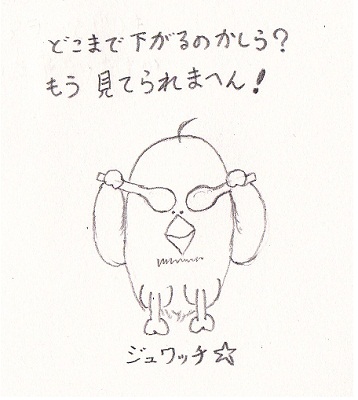 どこまで下がるのかしら?
もう 見てられまへん!
ジュワッチ☆